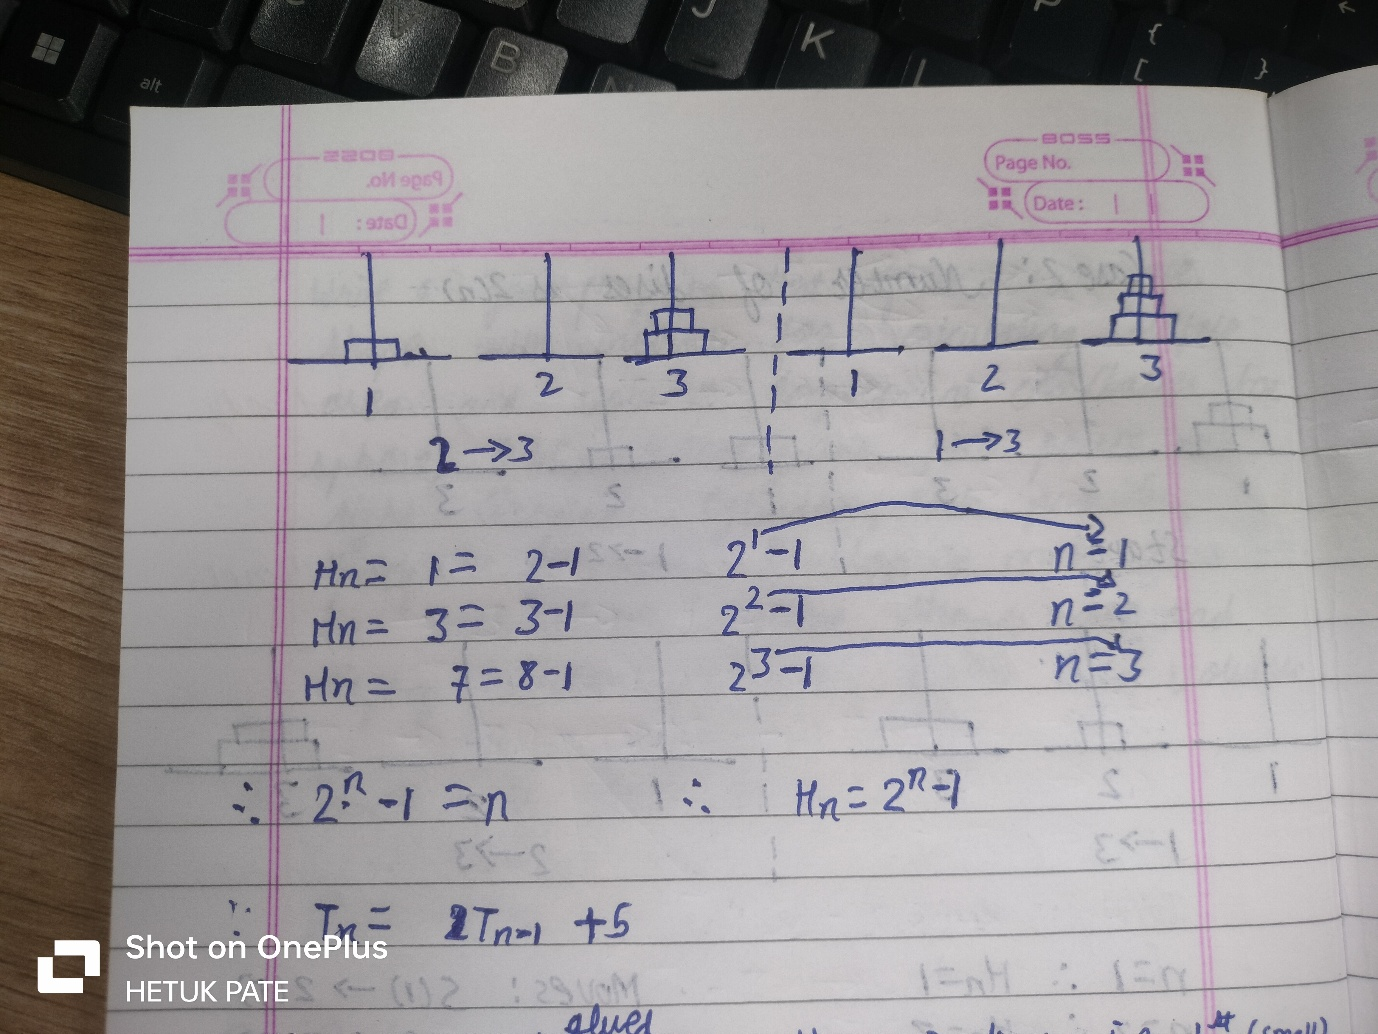 alt
B
J
K
L
{
[
}
BOSS
Page No.
Date:
1 2 3 1 2 3
2 → 3 1 → 3
Hn = 1 = 2-1 2^1-1 n=1
Hn = 3 = 3-1 2^2-1 n=2
Hn = 7 = 8-1 2^3-1 n=3
∴ 2^n-1 = n ∴ Hn = 2^n-1
∴ Tn = 2Tn-1 +5
Shot on OnePlus
HETUK PATE